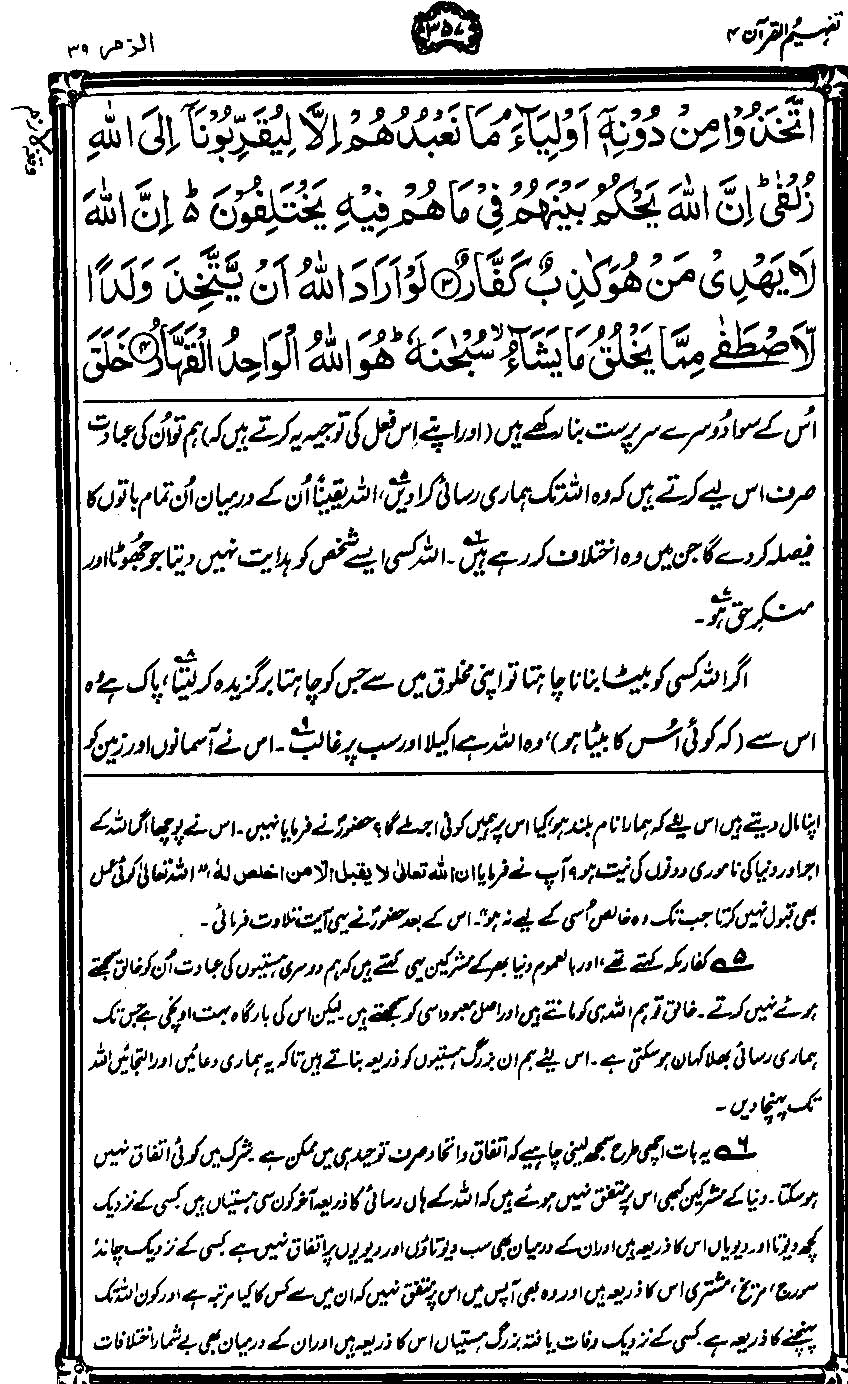 تفہیم القرآن ۴
۳۵۷
الزمر ۳۹
اتَّخَذُوْا مِنْ دُوْنِهٖٓ اَوْلِيَآءَ ۘ مَا نَعْبُدُهُمْ اِلَّا لِيُقَرِّبُوْنَآ اِلَى اللّٰهِ
زُلْفٰى ؕ اِنَّ اللّٰهَ يَحْكُمُ بَيْنَهُمْ فِيْ مَا هُمْ فِيْهِ يَخْتَلِفُوْنَ ؕ اِنَّ اللّٰهَ
لَا يَهْدِيْ مَنْ هُوَ كٰذِبٌ كَفَّارٌ ﴿۳﴾ لَوْ اَرَادَ اللّٰهُ اَنْ يَّتَّخِذَ وَلَدًا
لَّاصْطَفٰى مِمَّا يَخْلُقُ مَا يَشَآءُ ۙ سُبْحٰنَهٗ ؕ هُوَ اللّٰهُ الْوَاحِدُ الْقَهَّارُ ﴿۴﴾ خَلَقَ
اُس کے سوا دُوسرے سرپرست بنا رکھے ہیں (اور اپنے اِس فعل کی توجیہ یہ کرتے ہیں کہ) ہم تو اُن کی عبادت
صرف اس لیے کرتے ہیں کہ وہ اللہ تک ہماری رسائی کرا دیں۵، اللہ یقیناً اُن کے درمیان اُن تمام باتوں کا
فیصلہ کر دے گا جن میں وہ اختلاف کر رہے ہیں۶۔ اللہ کسی ایسے شخص کو ہدایت نہیں دیتا جو جھُوٹا اور
منکرِ حق ہو۷۔
اگر اللہ کسی کو بیٹا بنانا چاہتا تو اپنی مخلوق میں سے جس کو چاہتا برگزیدہ کر لیتا۸، پاک ہے وُہ
اس سے (کہ کوئی اُس کا بیٹا ہو)، وہ اللہ ہے اکیلا اور سب پر غالب۹۔ اس نے آسمانوں اور زمین کو
اپنا مال دیتے ہیں اس لیے کہ ہمارا نام بلند ہو، کیا اس پر ہمیں کوئی اجر ملے گا؟ حضورؐ نے فرمایا نہیں۔ اس نے پوچھا اگر اللہ کے
اجر اور دنیا کی ناموری دونوں کی نیت ہو؟ آپ نے فرمایا ان اللہ تعالیٰ لا یقبل الّا من اخلص لہٗ، "اللہ تعالیٰ کوئی عمل
بھی قبول نہیں کرتا جب تک وہ خالص اُسی کے لیے نہ ہو"۔ اس کے بعد حضورؐ نے یہی آیت تلاوت فرمائی۔
۵ کفارِ مکہ کہتے تھے، اور بالعموم دنیا بھر کے مشرکین یہی کہتے ہیں کہ ہم دوسری ہستیوں کی عبادت اُن کو خالق سمجھتے
ہوئے نہیں کرتے۔ خالق تو ہم اللہ ہی کو مانتے ہیں اور اصل معبود اسی کو سمجھتے ہیں۔ لیکن اس کی بارگاہ بہت اونچی ہے جس تک
ہماری رسائی بھلا کہاں ہو سکتی ہے۔ اس لیے ہم ان بزرگ ہستیوں کو ذریعہ بناتے ہیں تاکہ یہ ہماری دعائیں اور التجائیں اللہ
تک پہنچا دیں۔
۶ یہ بات اچھی طرح سمجھ لینی چاہیے کہ اتفاق و اتحاد صرف توحید ہی میں ممکن ہے۔ شرک میں کوئی اتفاق نہیں
ہو سکتا۔ دنیا کے مشرکین کبھی اس پر متفق نہیں ہوئے ہیں کہ اللہ کے ہاں رسائی کا ذریعہ آخر کون سی ہستیاں ہیں۔ کسی کے نزدیک
کچھ دیوتا اور دیویاں اس کا ذریعہ ہیں اور ان کے درمیان بھی سب دیوتاؤں اور دیویوں پر اتفاق نہیں ہے۔ کسی کے نزدیک چاند،
سورج، مریخ، مشتری اس کا ذریعہ ہیں اور وہ بھی آپس میں اس پر متفق نہیں کہ ان میں سے کس کا کیا مرتبہ ہے اور کون اللہ تک
پہنچنے کا ذریعہ ہے۔ کسی کے نزدیک وفات یافتہ بزرگ ہستیاں اس کا ذریعہ ہیں اور ان کے درمیان بھی بے شمار اختلافات